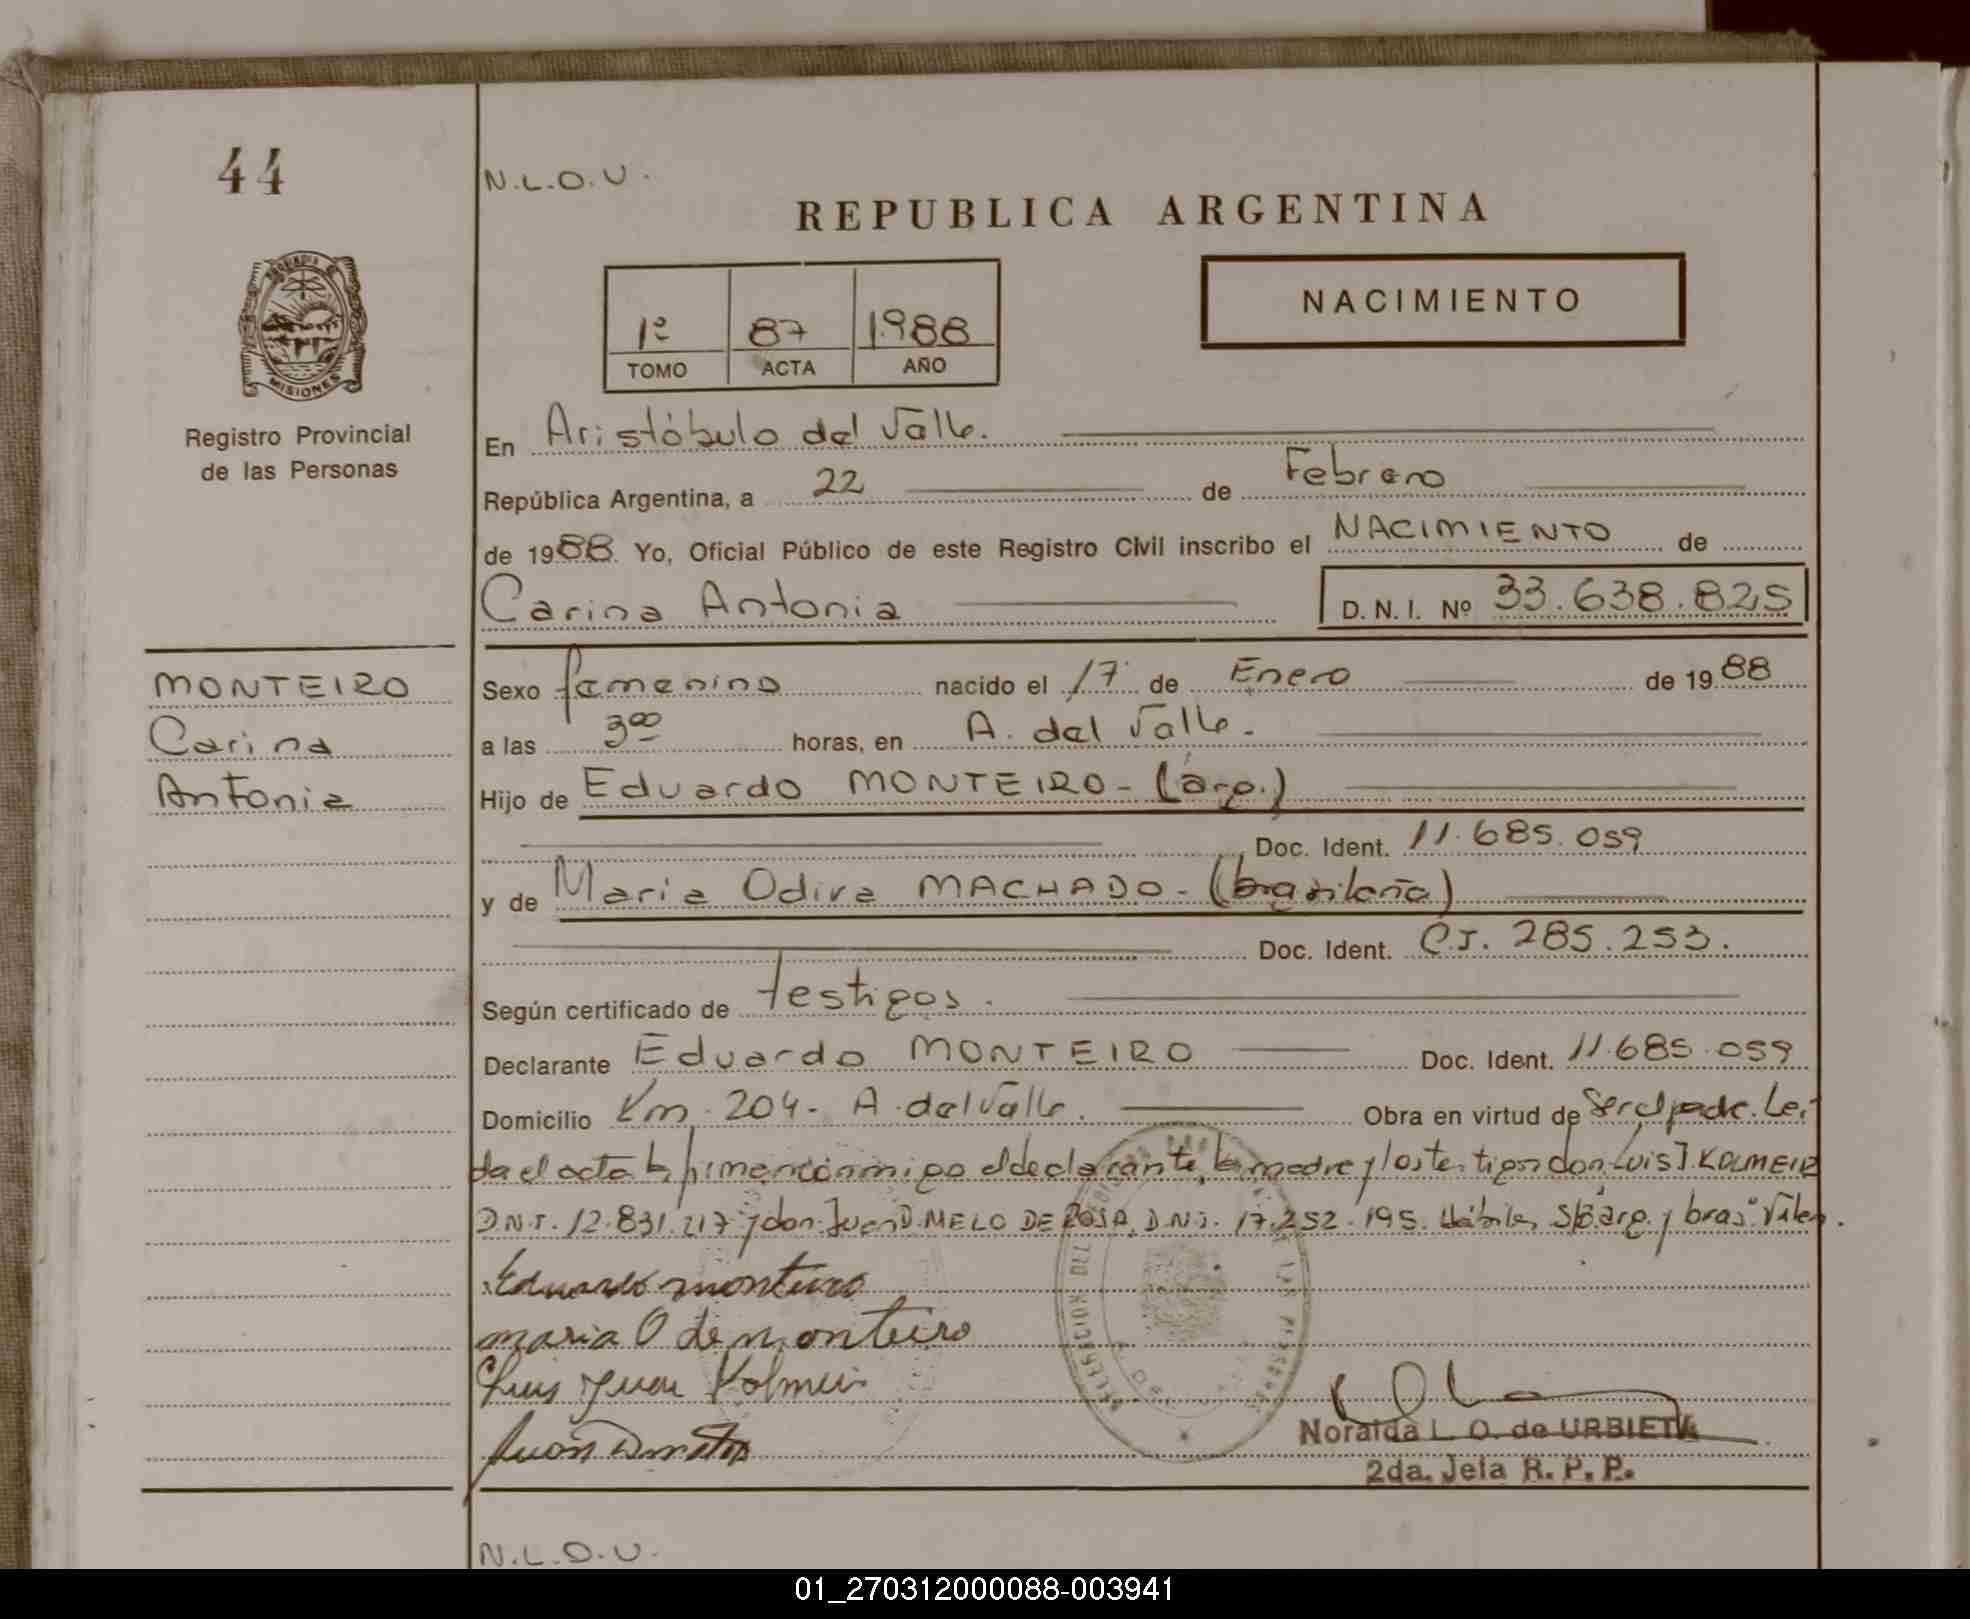 44
N.L.O.U.
REPUBLICA ARGENTINA
PROVINCIA DE
MISIONES
1º 87 1.988
TOMO ACTA AÑO
NACIMIENTO
Registro Provincial
de las Personas
En Aristóbulo del Valle.
República Argentina, a 22 de Febrero
de 1988. Yo, Oficial Público de este Registro Civil inscribo el NACIMIENTO de
Carina Antonia D.N.I. Nº 33.638.825
MONTEIRO
Carina
Antonia
Sexo femenino nacido el 17 de Enero de 1988
a las 3 00 horas, en A. del Valle.
Hijo de Eduardo MONTEIRO - (arg.)
Doc. Ident. 11.685.059
y de Maria Odira MACHADO - (brasileña)
Doc. Ident. C.I. 285.253.
Según certificado de testigos.
Declarante Eduardo MONTEIRO Doc. Ident. 11.685.059
Domicilio Km. 204 - A. del Valle. Obra en virtud de ser el padre. Leí-
da el acta la firman conmigo el declarante, la madre y los testigos don Luis J. KOLMEIR
D.N.I. 12.831.217 y don Juan D. MELO DE ROSA, D.N.I. 17.252.195. Hábiles, S/B. arg. y bras. Valen.
Eduardo monteiro
maria O de monteiro
Luis Juan Kolmeir
Juan
Noraida L. O. de URBIETA
2da. Jefa R. P. P.
N.L.O.U.
01_270312000088-003941